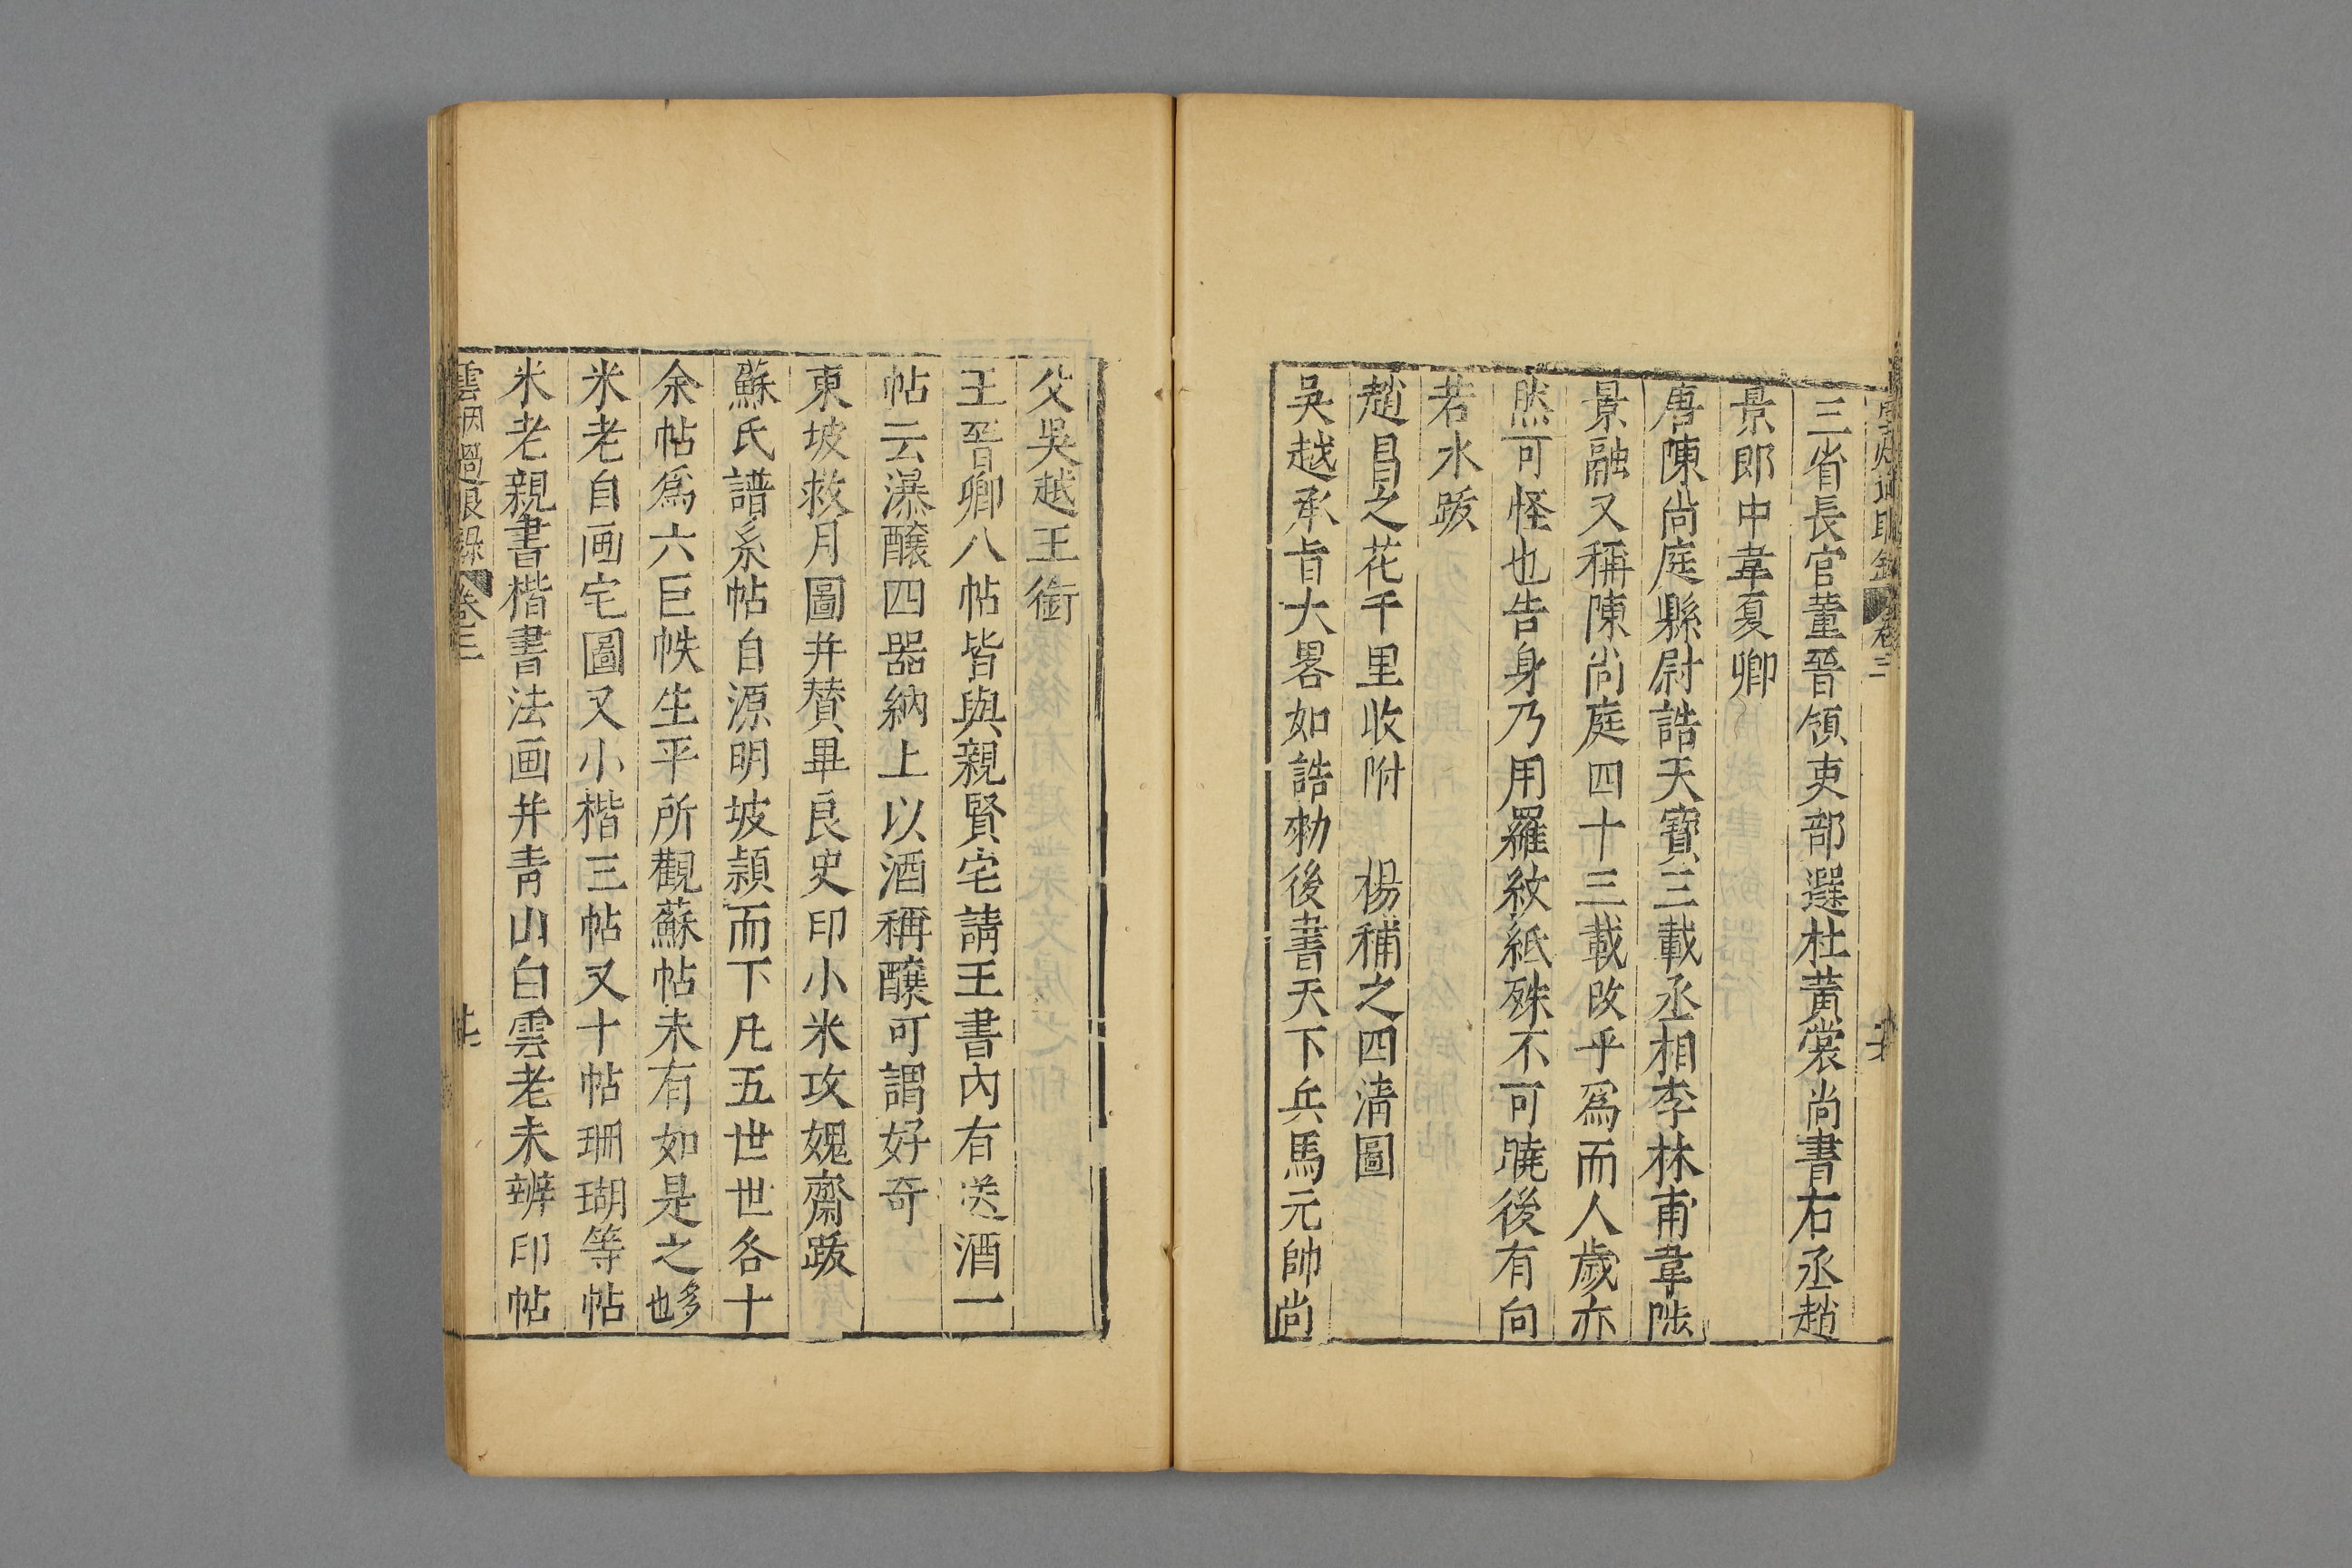 三省長官董晉領吏部選杜黃裳尚書右丞趙
景郎中韋夏卿
唐陳尚庭縣尉誥天寶三載丞相李林甫韋陟
景融又稱陳尚庭四十三載改乎爲而人歲亦
然可怪也告身乃用羅紋紙殊不可曉後有向
若水跋
趙昌之花千里收附　楊補之四清圖
吳越承旨大畧如誥勑後書天下兵馬元帥尚
父吳越王銜
王晉卿八帖皆與親賢宅請王書內有送酒一
帖云瀑醸四器納上以酒稱醸可謂好奇
東坡救月圖并贊畢良史印小米攻媿齋跋
蘇氏譜系帖自源明坡頴而下凡五世世各十
余帖爲六巨帙生平所觀蘇帖未有如是之多也
米老自画宅圖又小楷三帖又十帖珊瑚等帖
米老親書楷書法画并青山白雲老未辨印帖
雲烟過眼錄 卷三